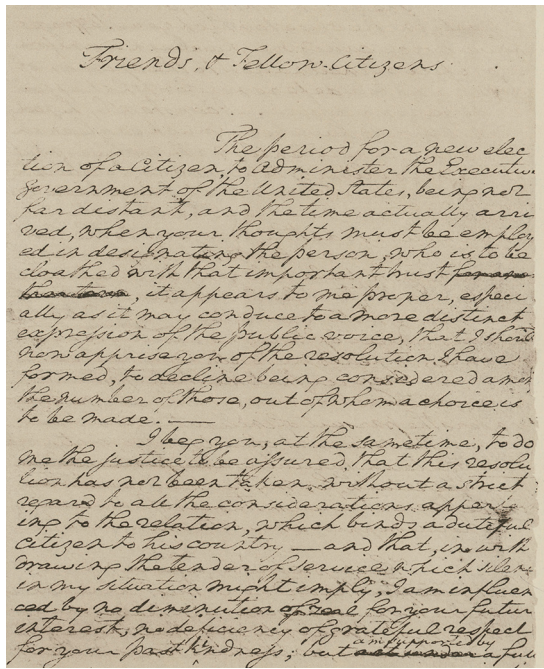 Friends, & Fellow-Citizens
The period for a new elec
tion of a Citizen, to administer the Executive
government of the United States, being not
far distant, and the time actually arri
ved, when your thoughts must be employ
ed in designating the person, who is to be
cloathed with that important trust
, it appears to me proper, especi
ally as it may conduce to a more distinct
expression of the public voice, that I should
now apprise you of the resolution I have
formed, to decline being considered among
the number of those, out of whom a choice is
to be made. —
I beg you, at the same time, to do
me the justice to be assured, that this resolu
tion has not been taken, without a strict
regard to all the considerations appertain
ing to the relation, which binds a dutiful
citizen to his country — and that, in with
drawing the tender of service which silence
in my situation might imply, I am influen
ced by no diminution of zeal for your future
interest, no deficiency of grateful respect
am supported by
for your past kindness; but a full